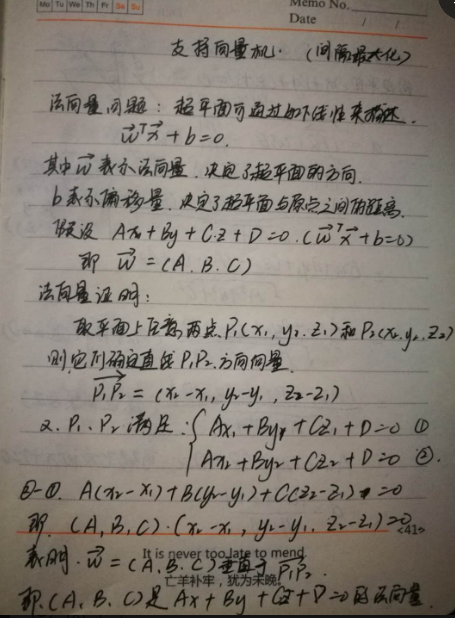 Mo Tu We Th Fr Sa Su
Memo No.
Date / /
支持向量机. (间隔最大化)
法向量问题: 超平面可通过如下线性来描述.
w⃗ᵀx⃗ + b = 0.
其中 w⃗ 表示法向量, 决定了超平面的方向.
b 表示偏移量, 决定了超平面与原点之间的距离.
假设 Ax + By + C·z + D = 0. (w⃗ᵀx⃗ + b = 0)
即 w⃗ = (A. B. C)
法向量证明:
取平面上任意两点 P₁(x₁, y₂. z₁) 和 P₂(x₂. y₂. z₂)
则它们确定直线 P₁P₂ 方向向量
P₁P₂ = (x₂ - x₁, y₂ - y₁, z₂ - z₁)
又. P₁. P₂ 满足: { Ax₁ + By₁ + Cz₁ + D = 0 ①
Ax₂ + By₂ + Cz₂ + D = 0 ②.
② - ①. A(x₂ - x₁) + B(y₂ - y₁) + C(z₂ - z₁) = 0
即. (A, B, C) · (x₂ - x₁, y₂ - y₁, z₂ - z₁) = 0
<41>
表明. w⃗ = (A, B, C) 垂直于 P₁P₂.
It is never too late to mend.
亡羊补牢，犹为未晚。
即. (A, B, C) 是 Ax + By + Cz + D = 0 的法向量.